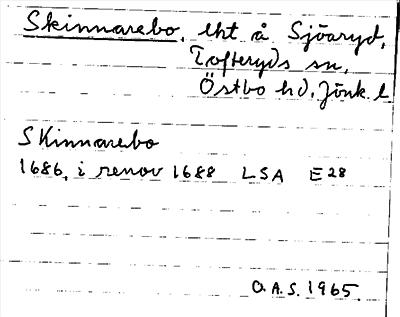 Skinnarebo, lht å Sjöaryd,
Tofteryds sn,
Östbo hd, Jönk. l
Skinnarebo
1686, i renov 1688 LSA E 28
O.A.S. 1965.